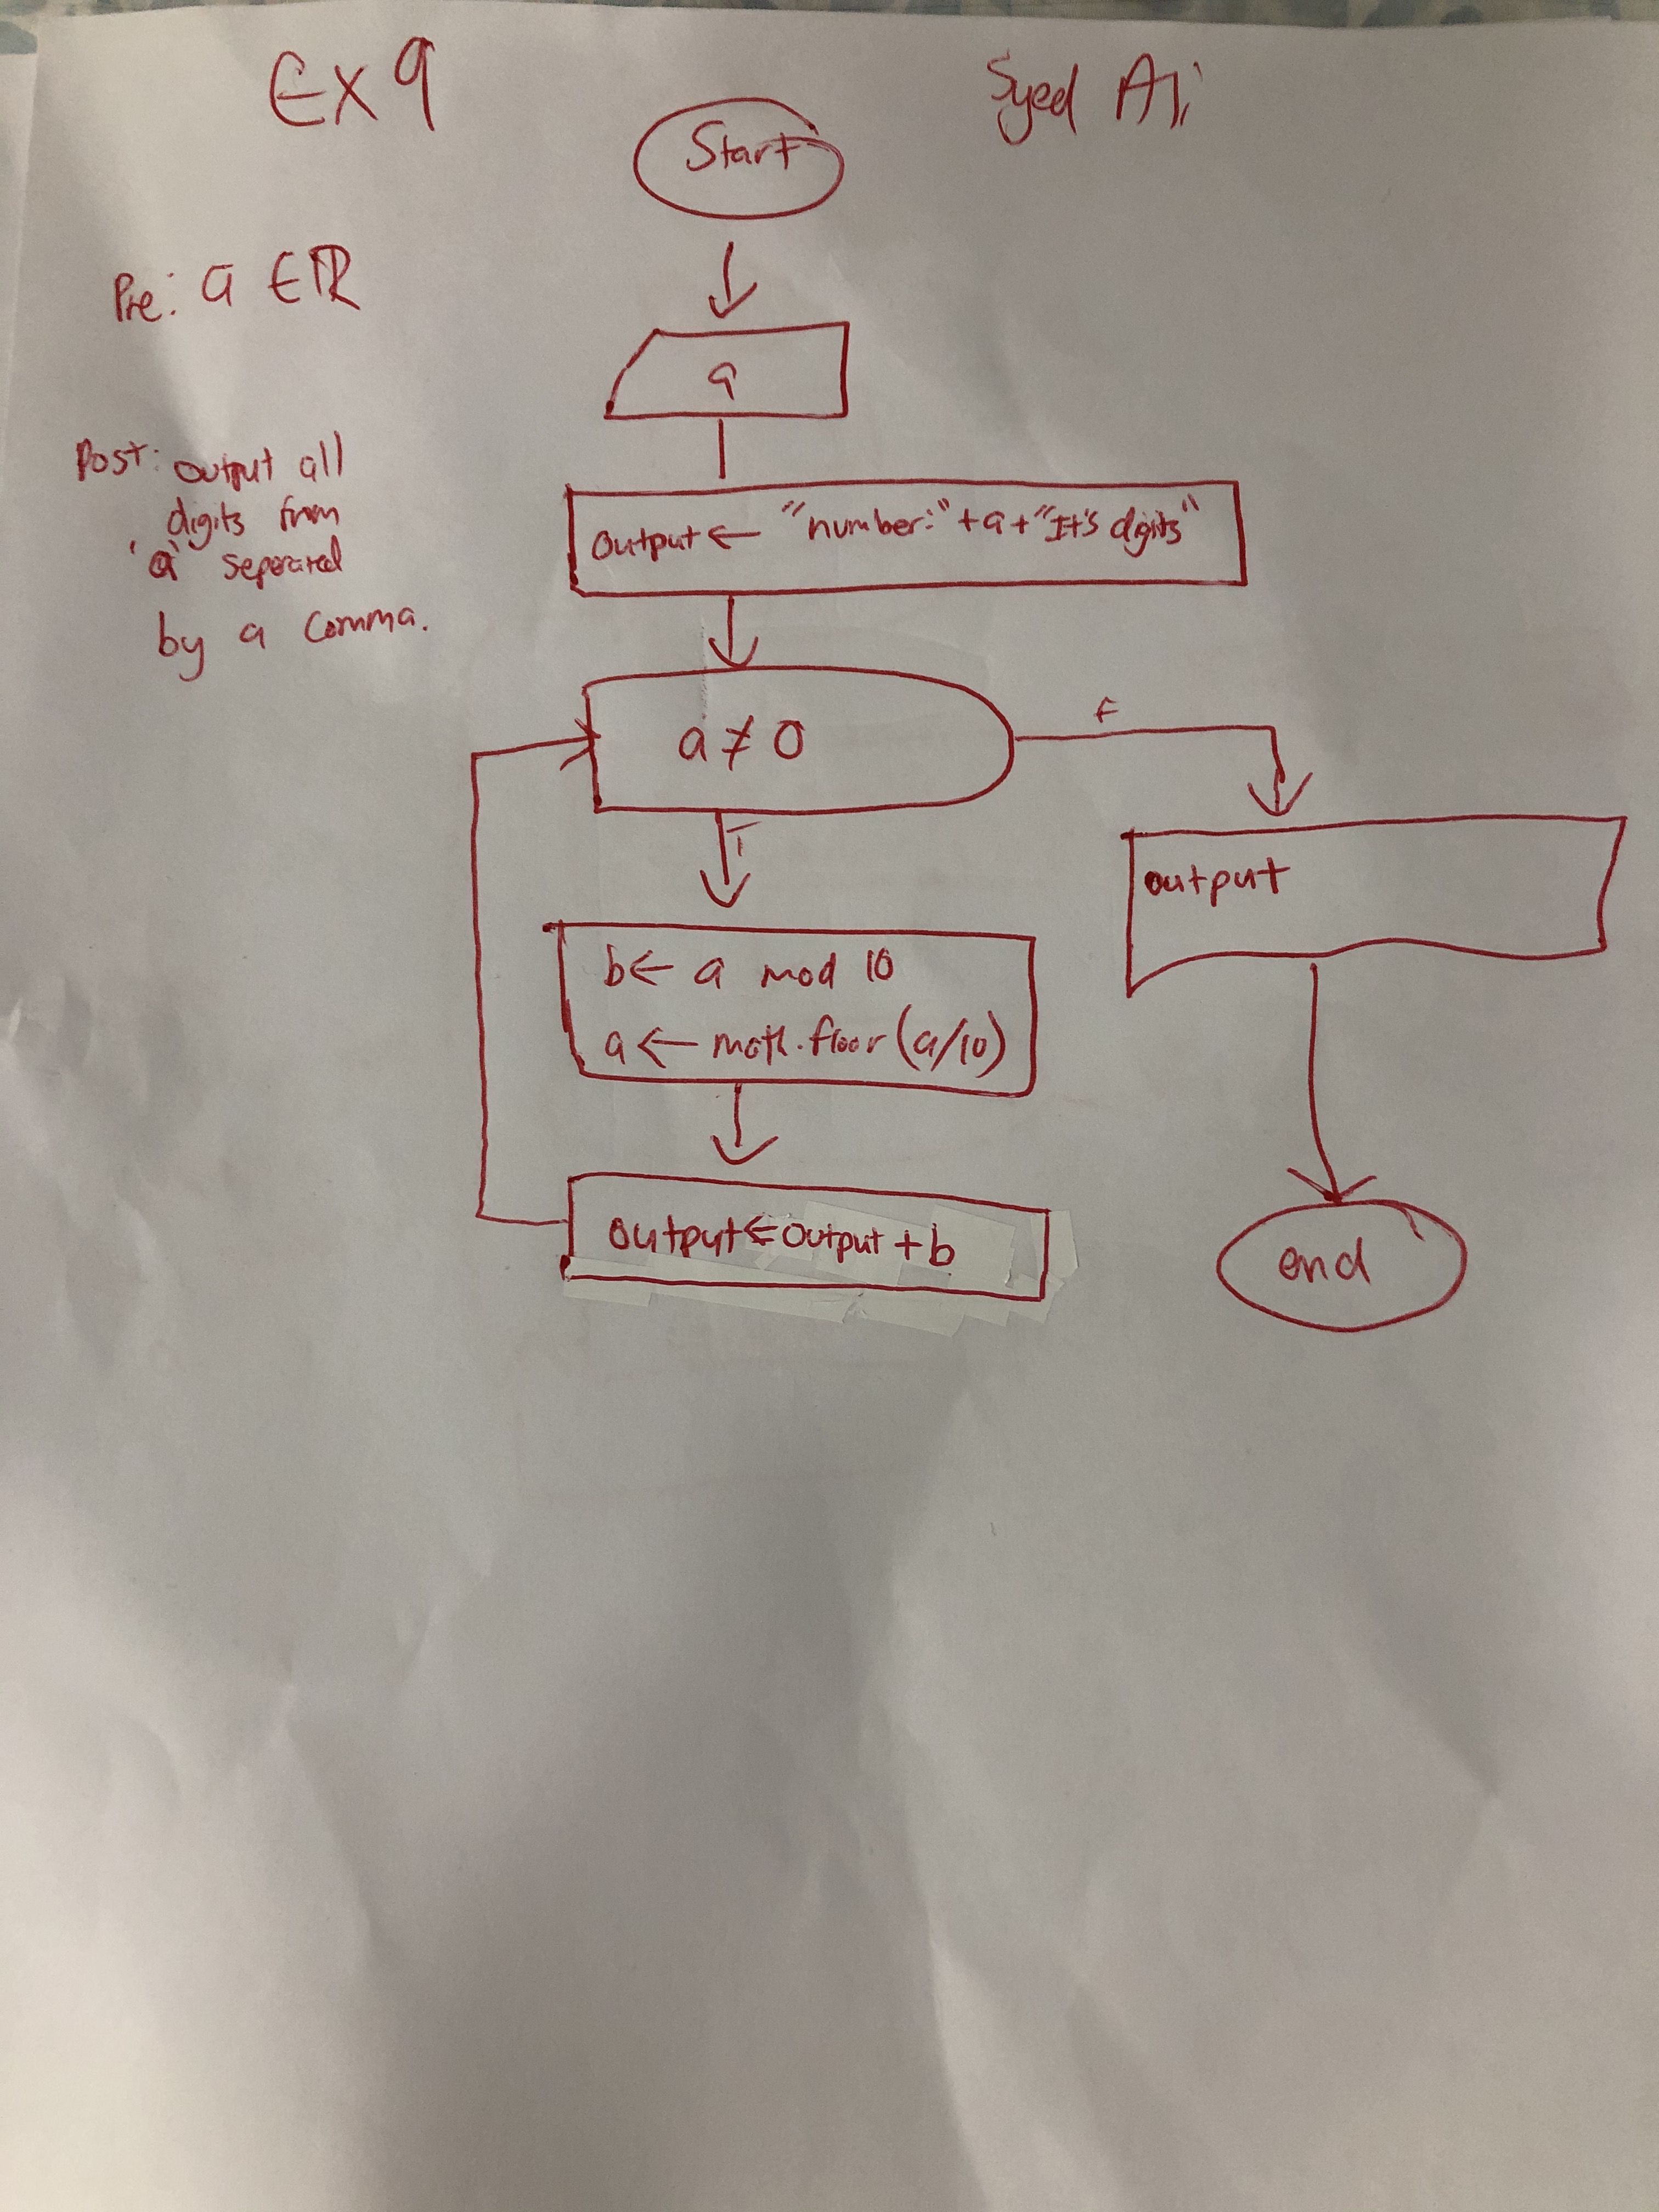 Ex 9
Syed Ali
Start
Pre: a ∈ ℝ
a
Post: output all
digits from
'a' seperated
by a comma.
output ← "number:" + a + "It's digits"
a ≠ 0
F
T
output
b ← a mod 10
a ← math.floor (a/10)
output ← output + b
end